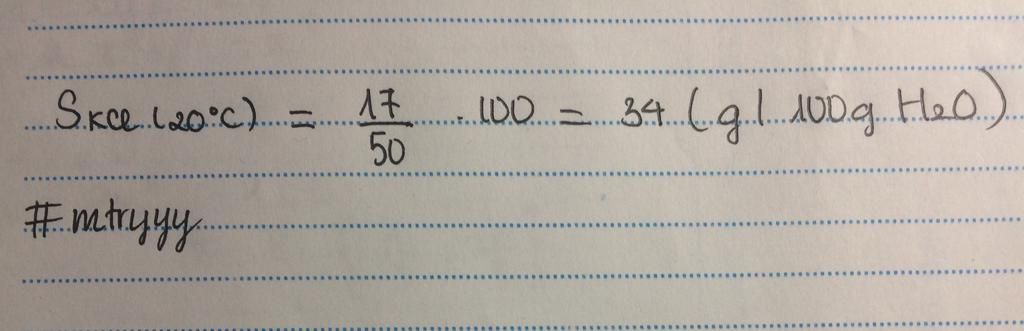 SKCl (20°C) = 17/50 . 100 = 34 (g/100g H2O)
#mtryyy